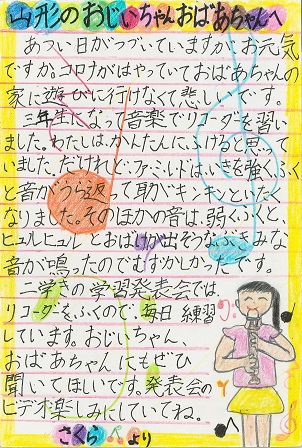 山形のおじいちゃんおばあちゃんへ
あつい日がつづいていますが、お元気
ですか。コロナがはやっていておばあちゃんの
家に遊びに行けなくて悲しいです。
三年生になって音楽でリコーダーを習い
ました。わたしは、かんたんにふけると思って
いました。だけれど、ファ、ミ、レ、ドは、いきを強くふく
と音がうら返って耳がキンキンといたく
なりました。そのほかの音は、弱くふくと、
ヒュルヒュルとおばけが出そうなふきみな
音が鳴ったのでむずかしかったです。
二学きの学習発表会では、
リコーダーをふくので、毎日練習
しています。おじいちゃん、
おばあちゃんにもぜひ
聞いてほしいです。発表会の
ビデオ楽しみにしていてね。
さくらより